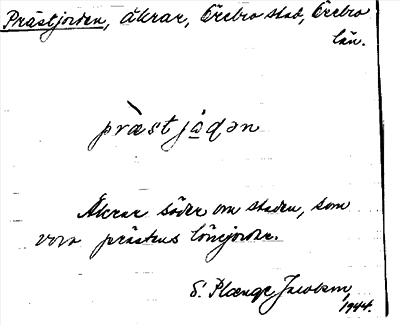 Prästjorden, åkrar, Örebro stad, Örebro
län.
præstjɑ̀qən
Åkrar söder om staden, som
voro prästens lönejordar.
S. Plænge Jacobson,
1944.